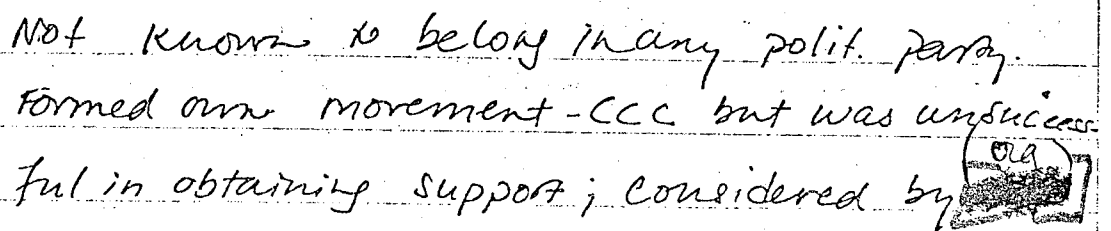 Not known to belong in any polit. party.
Formed own movement - CCC but was unsuccess-
ful in obtaining support; considered by